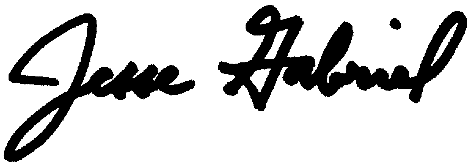 Jesse Gabriel